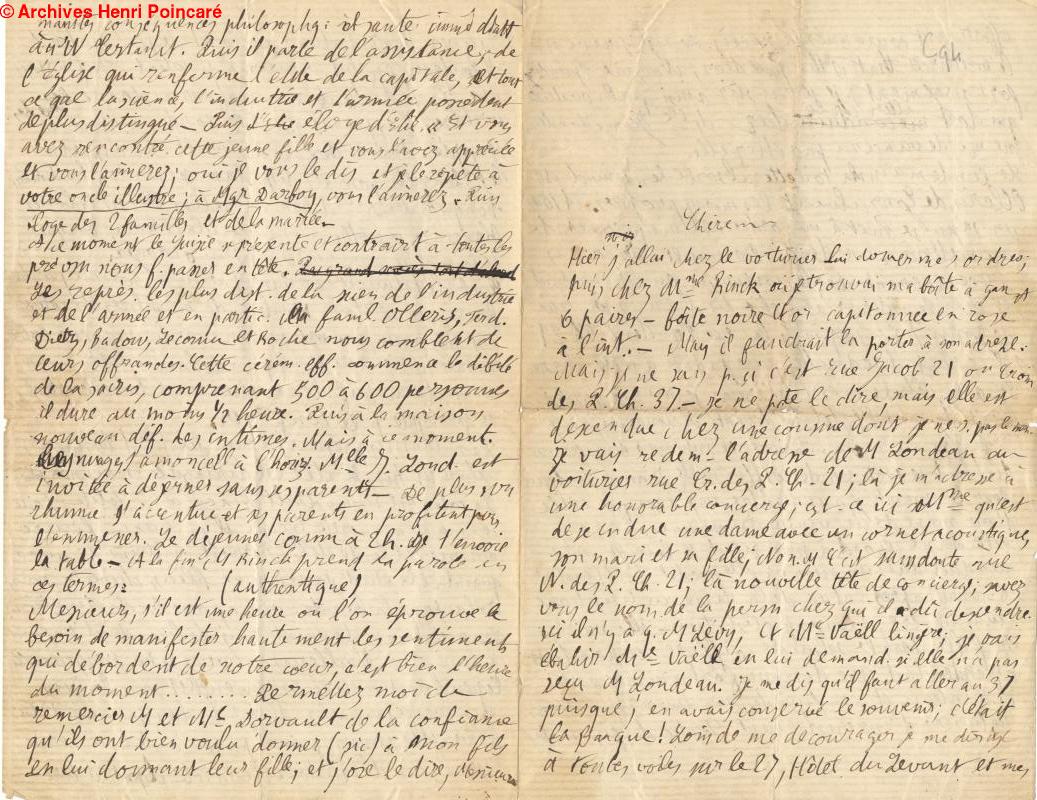 © Archives Henri Poincaré
conséquences philosophq: et saute
Puis il parle de l'assistance, de
l'église qui renferme l'élite de la capitale, et tout
ce que la science, l'industrie et l'armée possèdent
de plus distingué — Puis éloge d'Elis. vous
avez rencontré cette jeune fille et vous l'avez appréciée
et vous l'aimerez; oui je vous le dis et je le répète à
votre oncle illustre; à Mgr Darboy, vous l'aimerez. Puis
éloge des 2 familles et de la mariée
A ce moment le Suisse se présente et contrairt à toutes les
prévisn nous f. passer en tête.
Les représ. les plus dist. de la scien de l'industrie
et de l'armée et en partic. la famil. Olleris,
Badow, Lecornu et Roche nous comblent de
leurs offrandes. Cette cérém. eff. commence le défilé
de la sacris, comprenant 500 à 600 personnes
il dure au moins 1/2 heure. Puis à la maison
nouveau déf. des intimes. Mais à ce moment.
nuages s'amoncell à l'horiz. Mlle J. Lond. est
invitée à déjeuner sans ses parents — De plus son
rhume s'accentue et ses parents en profitent pour
l'emmener. Le déjeuner comm à 2h.
la table — A la fin M Rinck prend la parole en
ces termes: (authentique)
Messieurs, s'il est une heure où l'on éprouve le
besoin de manifester hautement les sentiments
qui débordent de notre coeur, c'est bien l'heure
du moment........ Permettez moi de
remercier M et Me Dorvault de la confiance
qu'ils ont bien voulu donner (sic) à mon fils
en lui donnant leur fille; et j'ose le dire, messieurs
C94
Hier j'allai chez le voiturier lui donner mes ordres;
puis chez Mme Rinck où je trouvai ma boîte à gants
6 paires — boîte noire et or capitonnée en rose
à l'int. — Mais il faudrait la porter à son adresse.
Mais je ne sais p. si c'est rue Jacob 21 ou Croix
des P. Ch. 37 — je ne pte le dire, mais elle est
descendue chez une cousine dont je ne s. pas le nom
je vais redem. l'adresse de M Londeau au
voiturier rue Cr. des P. Ch. 21; là je m'adresse à
une honorable concierge; est-ce ici Mme qu'est
descendue une dame avec un cornet acoustique,
son mari et sa fille; Non, M c'est sans doute rue
N. des P. Ch. 21; là nouvelle tête de concierg; savez
vous le nom de la personn chez qui il a dû descendre
ici il n'y a q. M Levy, et Me Vaëll lingère; je vais
ébahir Me Vaëll en lui demand. si elle n'a pas
reçu M Londeau. je me dis qu'il faut aller au 37
puisque j'en avais conservé le souvenir; c'était
la Banque! Loin de me décourager je me dirige
à toutes voiles sur le 27, Hôtel du Levant et mes